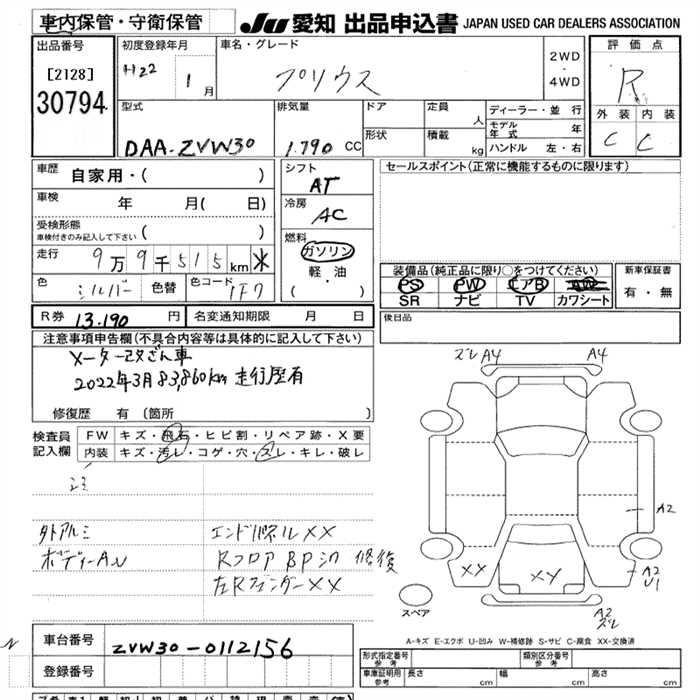 車内保管・守衛保管
JU 愛知 出品申込書 JAPAN USED CAR DEALERS ASSOCIATION
出品番号
[2128]
30794
初度登録年月
H22 1月
車名・グレード
プリウス
2WD
・
4WD
評価点
R
外装 内装
C C
型式
DAA-ZVW30
排気量
1.790 CC
ドア
形状
定員 人
積載 kg
ディーラー・並行
モデル年式 年
ハンドル 左・右
車歴
自家用・( )
車検 年 月( 日)
受検形態
車検付きのみ記入して下さい ( )
走行 9万9千515km
色 シルバー 色替 色コード 1F7
シフト
AT
冷房
AC
燃料
ガソリン
軽・油
( )
セールスポイント(正常に機能するものに限ります)
装備品(純正品に限り○をつけてください)
PS PW エアB AW
SR ナビ TV カワシート
新車保証書
有・無
R券 13,190 円 名変通知期限 月 日
後日品
注意事項申告欄(不具合内容等は具体的に記入して下さい)
メーター改ざん車
2022年3月83,860km走行歴有
修復歴 有 〔箇所 〕
検査員
記入欄
FW キズ・飛石・ヒビ割・リペア跡・X要
内装 キズ・汚レ・コゲ・穴・スレ・キレ・破レ
外アルミ エンドパネルXX
RフロアBPシワ 修復
左RフェンダーXX
ズレ A4 A4
A2
XX XY A2
U1
スペア
A2
ズレ
A-キズ E-エクボ U-凹み W-補修跡 S-サビ C-腐食 XX-交換済
車台番号 ZVW30-0112156
登録番号
形式指定番号
参考
類別区分番号
参考
車庫証明用
参考
長さ cm 幅 cm 高さ cm